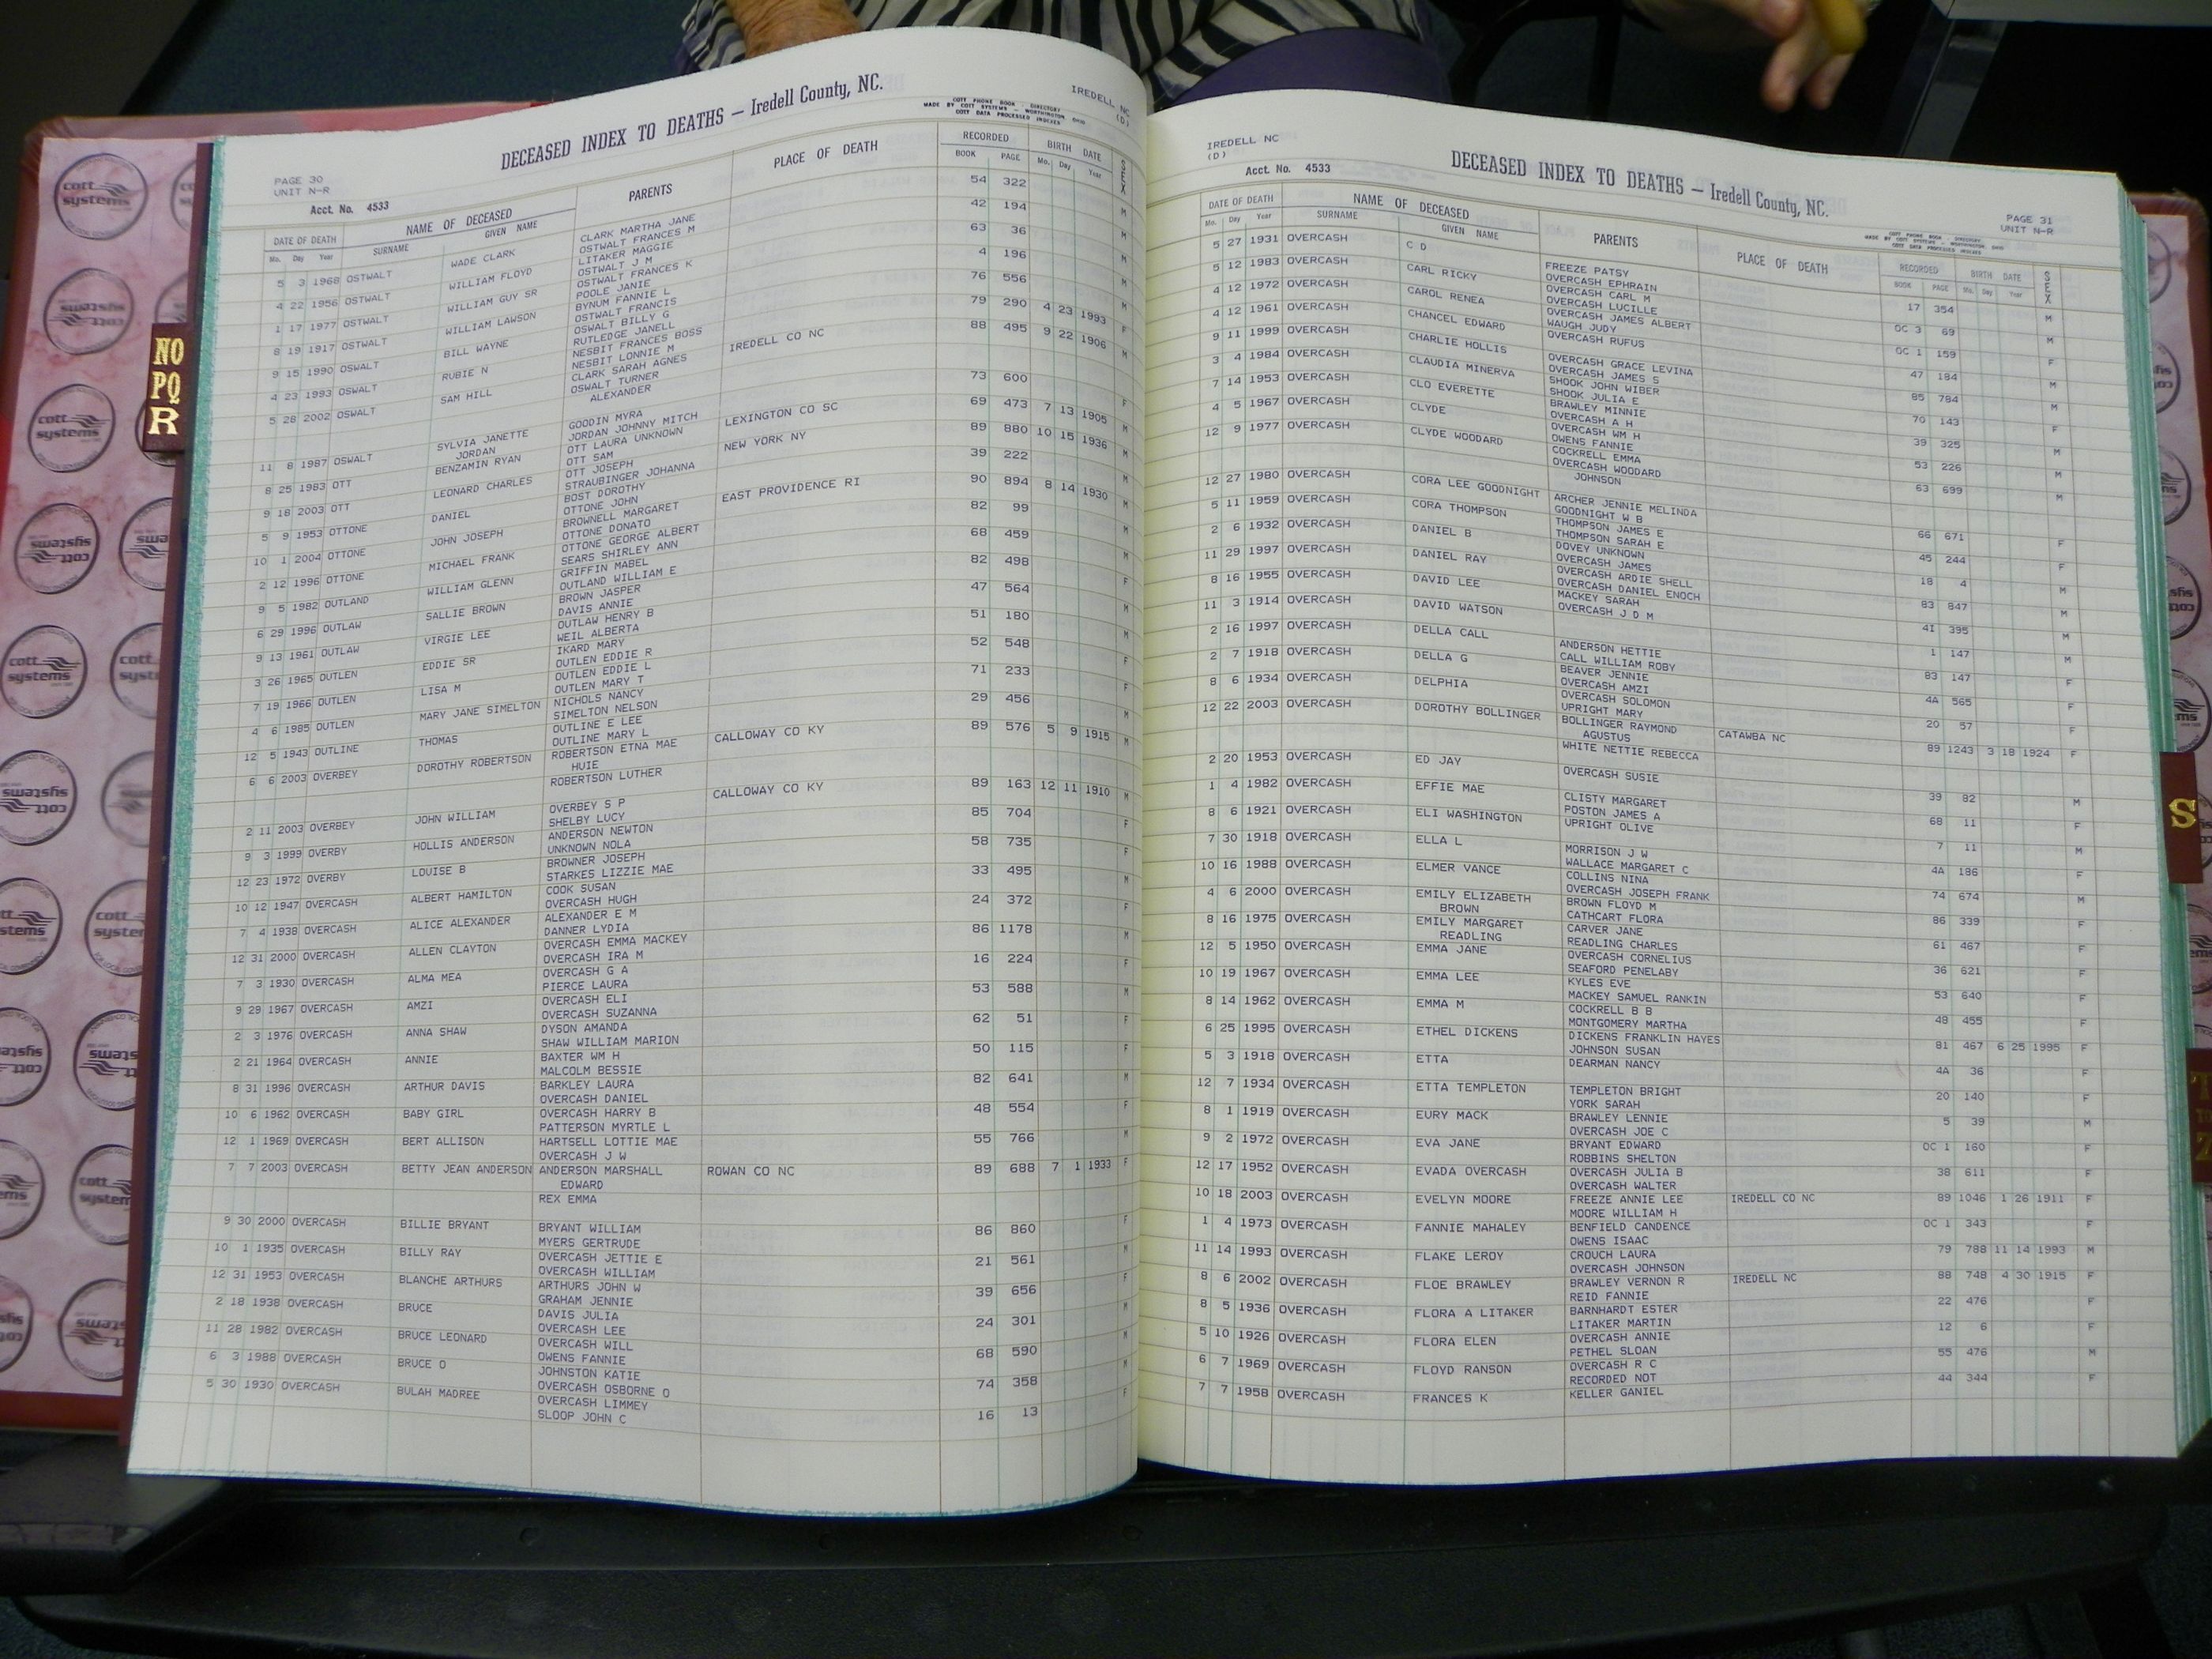 DECEASED INDEX TO DEATHS — Iredell County, NC.
IREDELL NC
(D)
COTT PHONE BOOK - DIRECTORY
MADE BY COTT SYSTEMS - WORTHINGTON OHIO
COTT DATA PROCESSED INDEXES
PAGE 30
UNIT N-R
Acct. No. 4533
DATE OF DEATH NAME OF DECEASED PARENTS PLACE OF DEATH RECORDED BIRTH DATE SEX
Mo. Day Year SURNAME GIVEN NAME BOOK PAGE Mo. Day Year
5 3 1968 OSTWALT WADE CLARK CLARK MARTHA JANE 54 322 M
OSTWALT FRANCES M
4 22 1956 OSTWALT WILLIAM FLOYD LITAKER MAGGIE 42 194 M
OSTWALT J M
1 17 1977 OSTWALT WILLIAM GUY SR OSTWALT FRANCES K 63 36 M
POOLE JANIE
8 19 1917 OSTWALT WILLIAM LAWSON BYNUM FANNIE L 4 196 M
OSTWALT FRANCIS
9 15 1990 OSWALT BILL WAYNE OSWALT BILLY G 76 556 M
RUTLEDGE JANELL
4 23 1993 OSWALT RUBIE N NESBIT FRANCES BOSS 79 290 4 23 1993 F
NESBIT LONNIE M
5 28 2002 OSWALT SAM HILL CLARK SARAH AGNES IREDELL CO NC 88 495 9 22 1906 M
OSWALT TURNER
ALEXANDER
11 8 1987 OSWALT SYLVIA JANETTE GOODIN MYRA 73 600 F
JORDAN JORDAN JOHNNY MITCH
8 25 1983 OTT BENZAMIN RYAN OTT LAURA UNKNOWN LEXINGTON CO SC 69 473 7 13 1905 M
OTT SAM
9 18 2003 OTT LEONARD CHARLES OTT JOSEPH NEW YORK NY 89 880 10 15 1936 M
STRAUBINGER JOHANNA
5 9 1953 OTTONE DANIEL BOST DOROTHY 39 222 M
OTTONE JOHN
10 1 2004 OTTONE JOHN JOSEPH BROWNELL MARGARET EAST PROVIDENCE RI 90 894 8 14 1930 M
OTTONE DONATO
2 12 1996 OTTONE MICHAEL FRANK OTTONE GEORGE ALBERT 82 99 M
SEARS SHIRLEY ANN
9 5 1982 OUTLAND WILLIAM GLENN GRIFFIN MABEL 68 459 M
OUTLAND WILLIAM E
6 29 1996 OUTLAW SALLIE BROWN BROWN JASPER 82 498 F
DAVIS ANNIE
9 13 1961 OUTLAW VIRGIE LEE OUTLAW HENRY B 47 564 M
WEIL ALBERTA
3 26 1965 OUTLEN EDDIE SR IKARD MARY 51 180 M
OUTLEN EDDIE R
7 19 1966 OUTLEN LISA M OUTLEN EDDIE L 52 548 F
OUTLEN MARY T
4 6 1985 OUTLEN MARY JANE SIMELTON NICHOLS NANCY 71 233 F
SIMELTON NELSON
12 5 1943 OUTLINE THOMAS OUTLINE E LEE 29 456 M
OUTLINE MARY L
6 6 2003 OVERBEY DOROTHY ROBERTSON ROBERTSON ETNA MAE CALLOWAY CO KY 89 576 5 9 1915 M
HUIE
ROBERTSON LUTHER
2 11 2003 OVERBEY JOHN WILLIAM OVERBEY S P CALLOWAY CO KY 89 163 12 11 1910 M
SHELBY LUCY
9 3 1999 OVERBY HOLLIS ANDERSON ANDERSON NEWTON 85 704 F
UNKNOWN NOLA
12 23 1972 OVERBY LOUISE B BROWNER JOSEPH 58 735 F
STARKES LIZZIE MAE
10 12 1947 OVERCASH ALBERT HAMILTON COOK SUSAN 33 495 M
OVERCASH HUGH
7 4 1938 OVERCASH ALICE ALEXANDER ALEXANDER E M 24 372 F
DANNER LYDIA
12 31 2000 OVERCASH ALLEN CLAYTON OVERCASH EMMA MACKEY 86 1178 M
OVERCASH IRA M
7 3 1930 OVERCASH ALMA MEA OVERCASH G A 16 224 F
PIERCE LAURA
9 29 1967 OVERCASH AMZI OVERCASH ELI 53 588 M
OVERCASH SUZANNA
2 3 1976 OVERCASH ANNA SHAW DYSON AMANDA 62 51 F
SHAW WILLIAM MARION
2 21 1964 OVERCASH ANNIE BAXTER WM H 50 115 F
MALCOLM BESSIE
8 31 1996 OVERCASH ARTHUR DAVIS BARKLEY LAURA 82 641 M
OVERCASH DANIEL
10 6 1962 OVERCASH BABY GIRL OVERCASH HARRY B 48 554 F
PATTERSON MYRTLE L
12 1 1969 OVERCASH BERT ALLISON HARTSELL LOTTIE MAE 55 766 M
OVERCASH J W
7 7 2003 OVERCASH BETTY JEAN ANDERSON ANDERSON MARSHALL ROWAN CO NC 89 688 7 1 1933 F
EDWARD
REX EMMA
9 30 2000 OVERCASH BILLIE BRYANT BRYANT WILLIAM 86 860 F
MYERS GERTRUDE
10 1 1935 OVERCASH BILLY RAY OVERCASH JETTIE E 21 561 M
OVERCASH WILLIAM
12 31 1953 OVERCASH BLANCHE ARTHURS ARTHURS JOHN W 39 656 F
GRAHAM JENNIE
2 18 1938 OVERCASH BRUCE DAVIS JULIA 24 301 M
OVERCASH LEE
11 28 1982 OVERCASH BRUCE LEONARD OVERCASH WILL 68 590 M
OWENS FANNIE
6 3 1988 OVERCASH BRUCE O JOHNSTON KATIE 74 358 M
OVERCASH OSBORNE O
5 30 1930 OVERCASH BULAH MADREE OVERCASH LIMMEY 16 13 F
SLOOP JOHN C
IREDELL NC
(D)
Acct. No. 4533
DECEASED INDEX TO DEATHS — Iredell County, NC.
PAGE 31
UNIT N-R
COTT PHONE BOOK - DIRECTORY
MADE BY COTT SYSTEMS - WORTHINGTON OHIO
COTT DATA PROCESSED INDEXES
DATE OF DEATH NAME OF DECEASED PARENTS PLACE OF DEATH RECORDED BIRTH DATE SEX
Mo. Day Year SURNAME GIVEN NAME BOOK PAGE Mo. Day Year
5 27 1931 OVERCASH C D FREEZE PATSY 17 354 M
OVERCASH EPHRAIN
5 12 1983 OVERCASH CARL RICKY OVERCASH CARL M OC 3 69 M
OVERCASH LUCILLE
4 12 1972 OVERCASH CAROL RENEA OVERCASH JAMES ALBERT OC 1 159 F
WAUGH JUDY
4 12 1961 OVERCASH CHANCEL EDWARD OVERCASH RUFUS 47 184 M
9 11 1999 OVERCASH CHARLIE HOLLIS OVERCASH GRACE LEVINA 85 784 M
OVERCASH JAMES S
3 4 1984 OVERCASH CLAUDIA MINERVA SHOOK JOHN WIBER 70 143 F
SHOOK JULIA E
7 14 1953 OVERCASH CLO EVERETTE BRAWLEY MINNIE 39 325 M
OVERCASH A H
4 5 1967 OVERCASH CLYDE OVERCASH WM H 53 226 M
OWENS FANNIE
12 9 1977 OVERCASH CLYDE WOODARD COCKRELL EMMA 63 699 M
OVERCASH WOODARD
JOHNSON
12 27 1980 OVERCASH CORA LEE GOODNIGHT ARCHER JENNIE MELINDA 66 671 F
GOODNIGHT W B
5 11 1959 OVERCASH CORA THOMPSON THOMPSON JAMES E 45 244 F
THOMPSON SARAH E
2 6 1932 OVERCASH DANIEL B DOVEY UNKNOWN 18 4 M
OVERCASH JAMES
11 29 1997 OVERCASH DANIEL RAY OVERCASH ARDIE SHELL 83 847 M
OVERCASH DANIEL ENOCH
8 16 1955 OVERCASH DAVID LEE MACKEY SARAH 41 395 M
OVERCASH J D M
11 3 1914 OVERCASH DAVID WATSON 1 147 M
2 16 1997 OVERCASH DELLA CALL ANDERSON HETTIE 83 147 F
CALL WILLIAM ROBY
2 7 1918 OVERCASH DELLA G BEAVER JENNIE 4A 565 F
OVERCASH AMZI
8 6 1934 OVERCASH DELPHIA OVERCASH SOLOMON 20 57 F
UPRIGHT MARY
12 22 2003 OVERCASH DOROTHY BOLLINGER BOLLINGER RAYMOND CATAWBA NC 89 1243 3 18 1924 F
AGUSTUS
WHITE NETTIE REBECCA
2 20 1953 OVERCASH ED JAY OVERCASH SUSIE 39 82 M
1 4 1982 OVERCASH EFFIE MAE CLISTY MARGARET 68 11 F
POSTON JAMES A
8 6 1921 OVERCASH ELI WASHINGTON UPRIGHT OLIVE 7 11 M
7 30 1918 OVERCASH ELLA L MORRISON J W 4A 186 F
WALLACE MARGARET C
10 16 1988 OVERCASH ELMER VANCE COLLINS NINA 74 674 M
OVERCASH JOSEPH FRANK
4 6 2000 OVERCASH EMILY ELIZABETH BROWN FLOYD M 86 339 F
BROWN CATHCART FLORA
8 16 1975 OVERCASH EMILY MARGARET CARVER JANE 61 467 F
READLING READLING CHARLES
12 5 1950 OVERCASH EMMA JANE OVERCASH CORNELIUS 36 621 F
SEAFORD PENELABY
10 19 1967 OVERCASH EMMA LEE KYLES EVE 53 640 F
MACKEY SAMUEL RANKIN
8 14 1962 OVERCASH EMMA M COCKRELL B B 48 455 F
MONTGOMERY MARTHA
6 25 1995 OVERCASH ETHEL DICKENS DICKENS FRANKLIN HAYES 81 467 6 25 1995 F
JOHNSON SUSAN
5 3 1918 OVERCASH ETTA DEARMAN NANCY 4A 36 F
12 7 1934 OVERCASH ETTA TEMPLETON TEMPLETON BRIGHT 20 140 F
YORK SARAH
8 1 1919 OVERCASH EURY MACK BRAWLEY LENNIE 5 39 M
OVERCASH JOE C
9 2 1972 OVERCASH EVA JANE BRYANT EDWARD OC 1 160 F
ROBBINS SHELTON
12 17 1952 OVERCASH EVADA OVERCASH OVERCASH JULIA B 38 611 F
OVERCASH WALTER
10 18 2003 OVERCASH EVELYN MOORE FREEZE ANNIE LEE IREDELL CO NC 89 1046 1 26 1911 F
MOORE WILLIAM H
1 4 1973 OVERCASH FANNIE MAHALEY BENFIELD CANDENCE OC 1 343 F
OWENS ISAAC
11 14 1993 OVERCASH FLAKE LEROY CROUCH LAURA 79 788 11 14 1993 M
OVERCASH JOHNSON
8 6 2002 OVERCASH FLOE BRAWLEY BRAWLEY VERNON R IREDELL NC 88 748 4 30 1915 F
REID FANNIE
8 5 1936 OVERCASH FLORA A LITAKER BARNHARDT ESTER 22 476 F
LITAKER MARTIN
5 10 1926 OVERCASH FLORA ELEN OVERCASH ANNIE 12 6 F
PETHEL SLOAN
6 7 1969 OVERCASH FLOYD RANSON OVERCASH R C 55 476 M
RECORDED NOT
7 7 1958 OVERCASH FRANCES K KELLER GANIEL 44 344 F
NO
PQ
R
S
cott systems